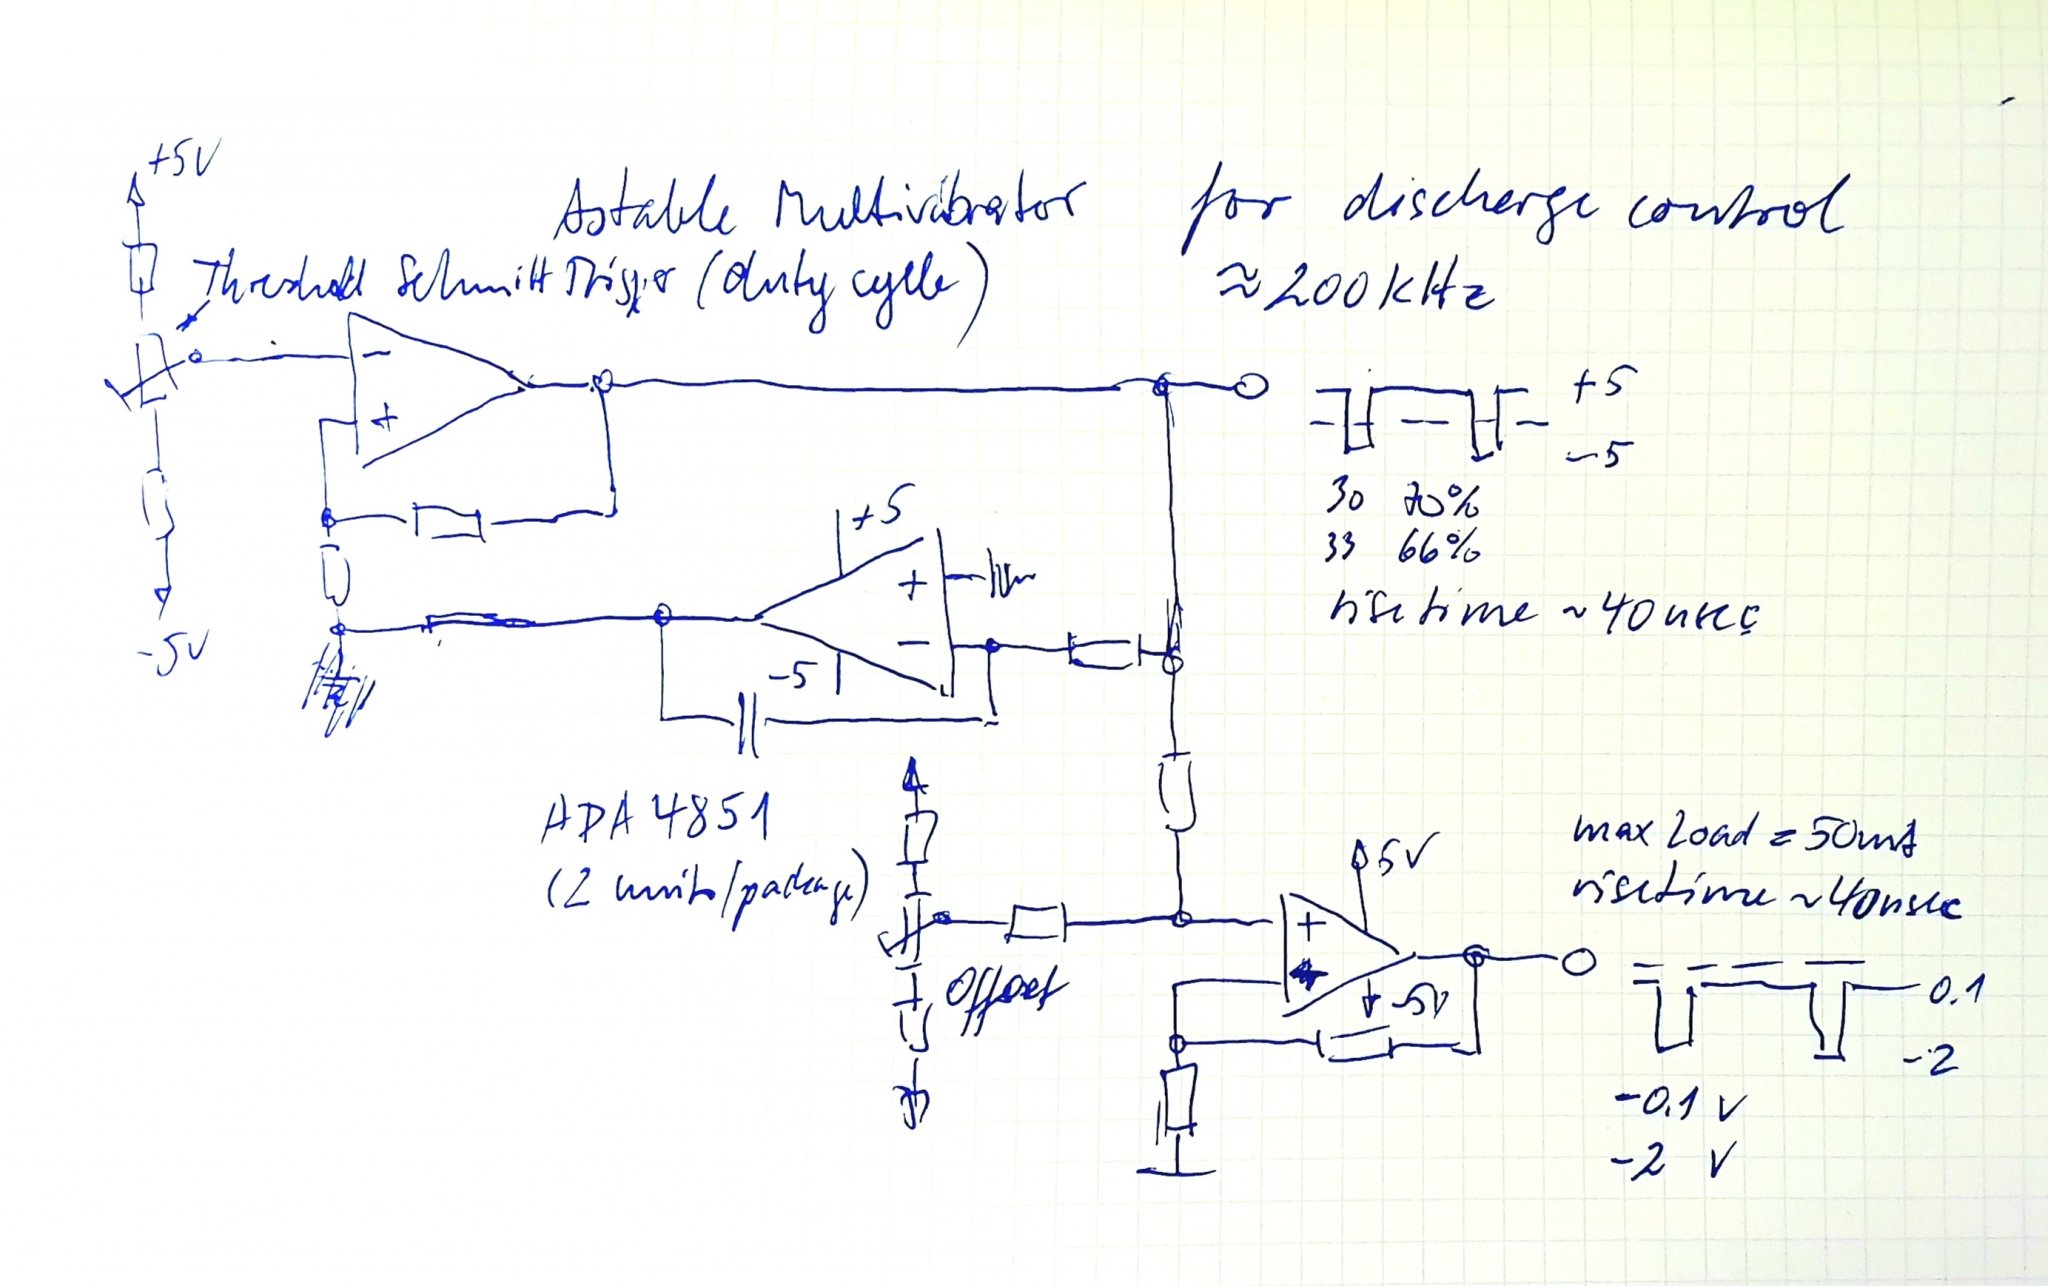 +5V
Astable Multivibrator for discharge control
Threshold Schmitt Trigger (duty cycle)
≈ 200 kHz
-
+
+5
-5
30 70%
33 66%
risetime ~40nsec
+5
+
-
-5
-5V
ADA 4851
(2 units/package)
max Load = 50mA
risetime ~40nsec
5V
+
-5V
Offset
0.1
-2
-0.1 V
-2 V